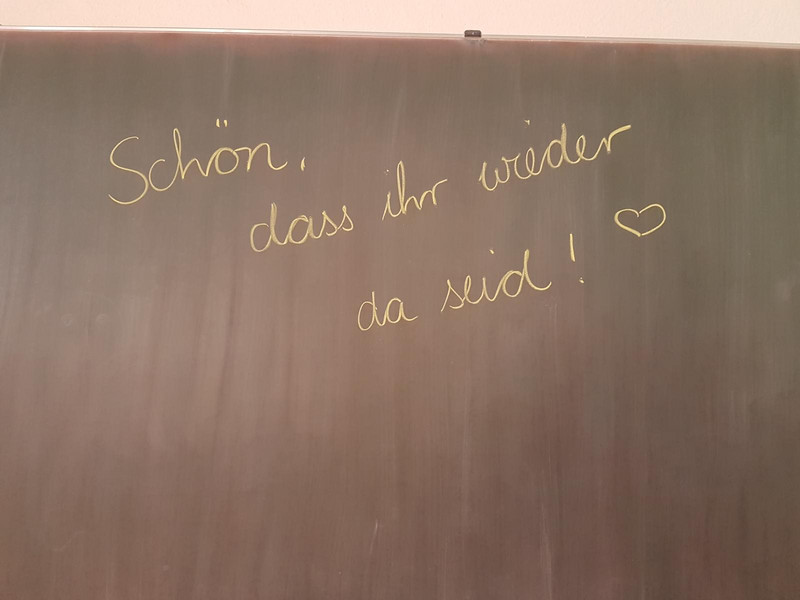 Schön,
dass ihr wieder
da seid! ♡